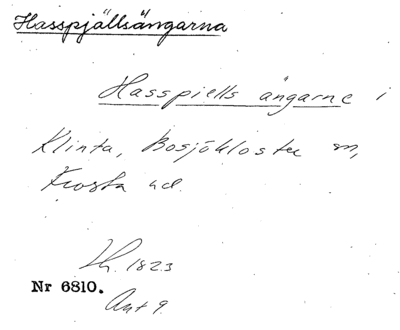 Hasspjällsängarna
Hasspiells ängarne i
Klinta, Bosjökloster sn,
Frosta hd.
Lh. 1823
Nr 6810.
Ant 9.